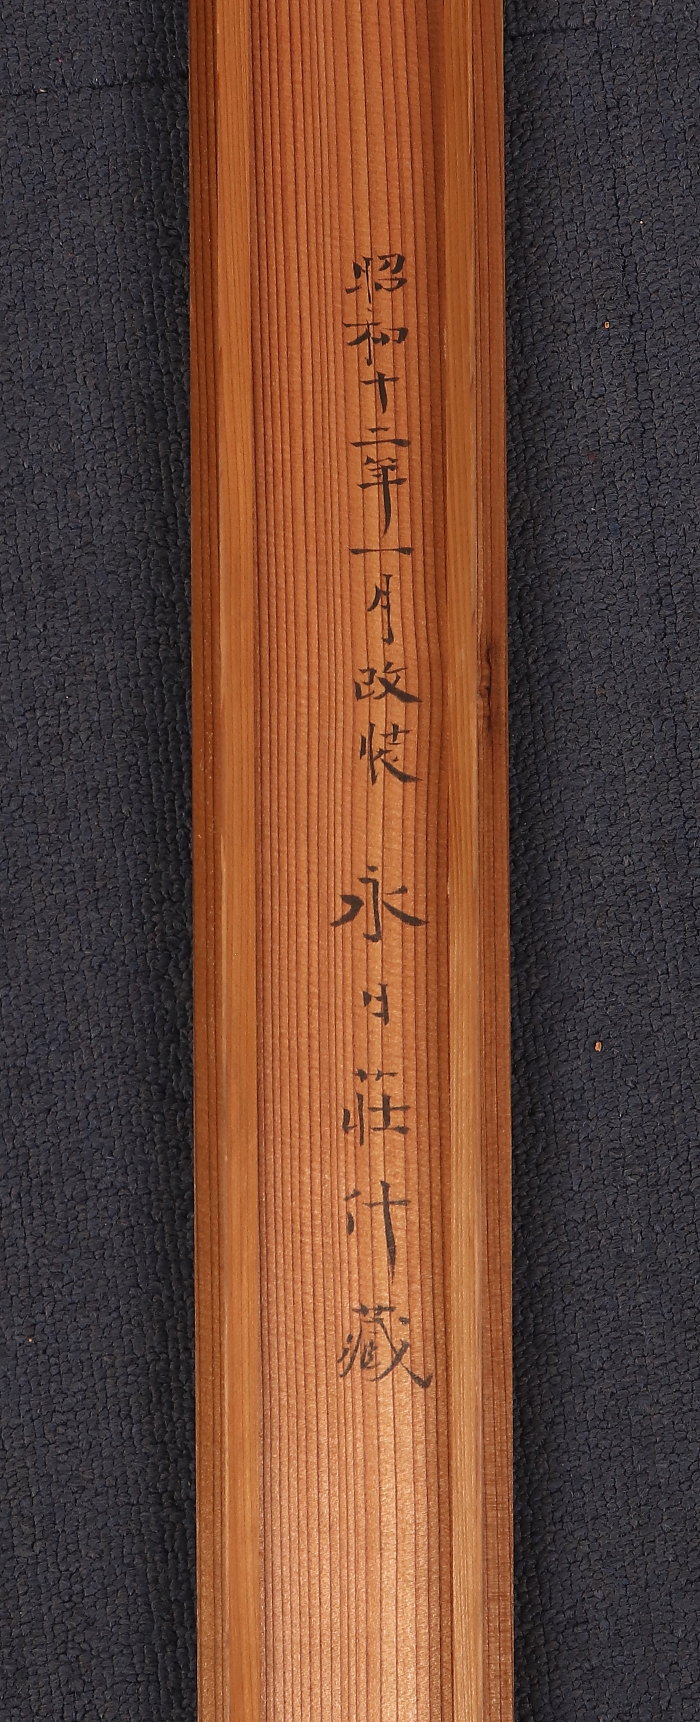 昭和十二年一月改装 永日荘什蔵